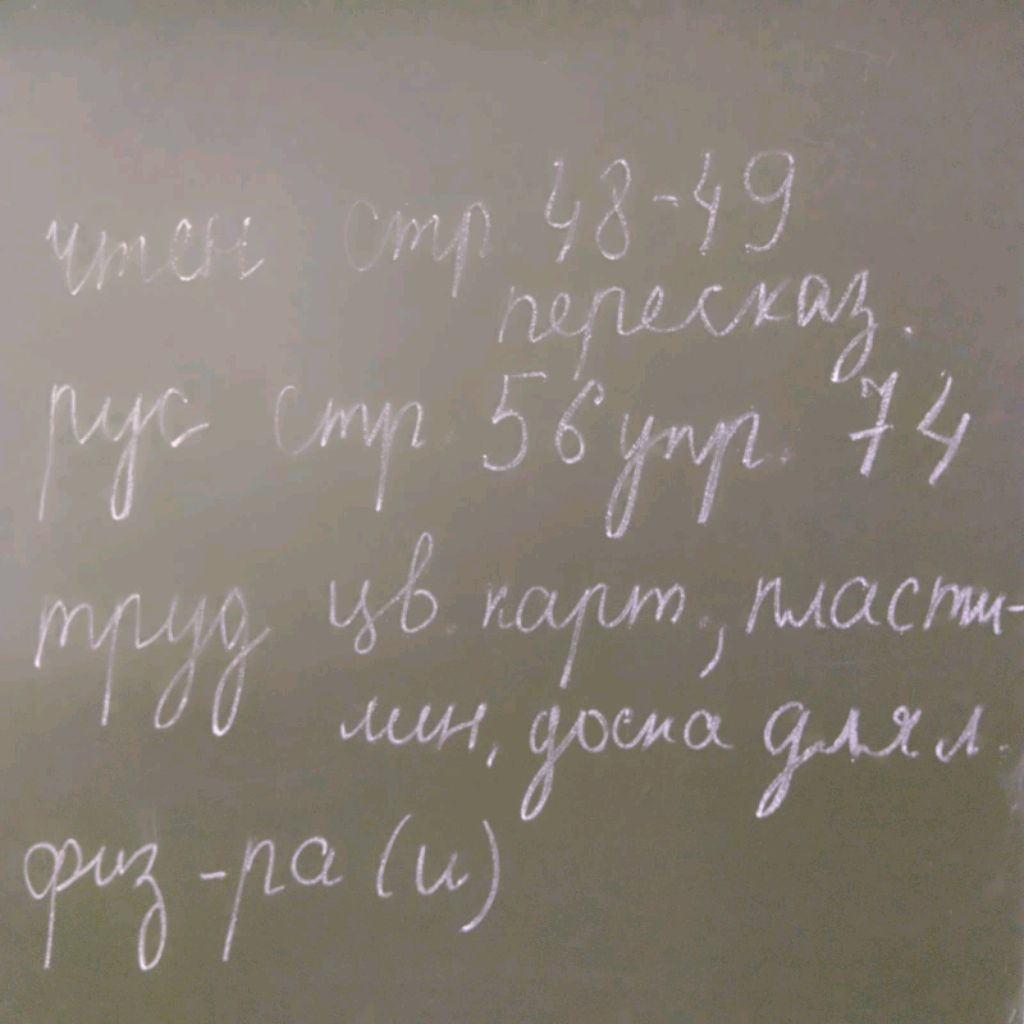 чтен стр 48-49
пересказ.
рус стр. 56 упр. 74
труд цв. карт., пласти-
лин, доска для л.
физ-ра (и)